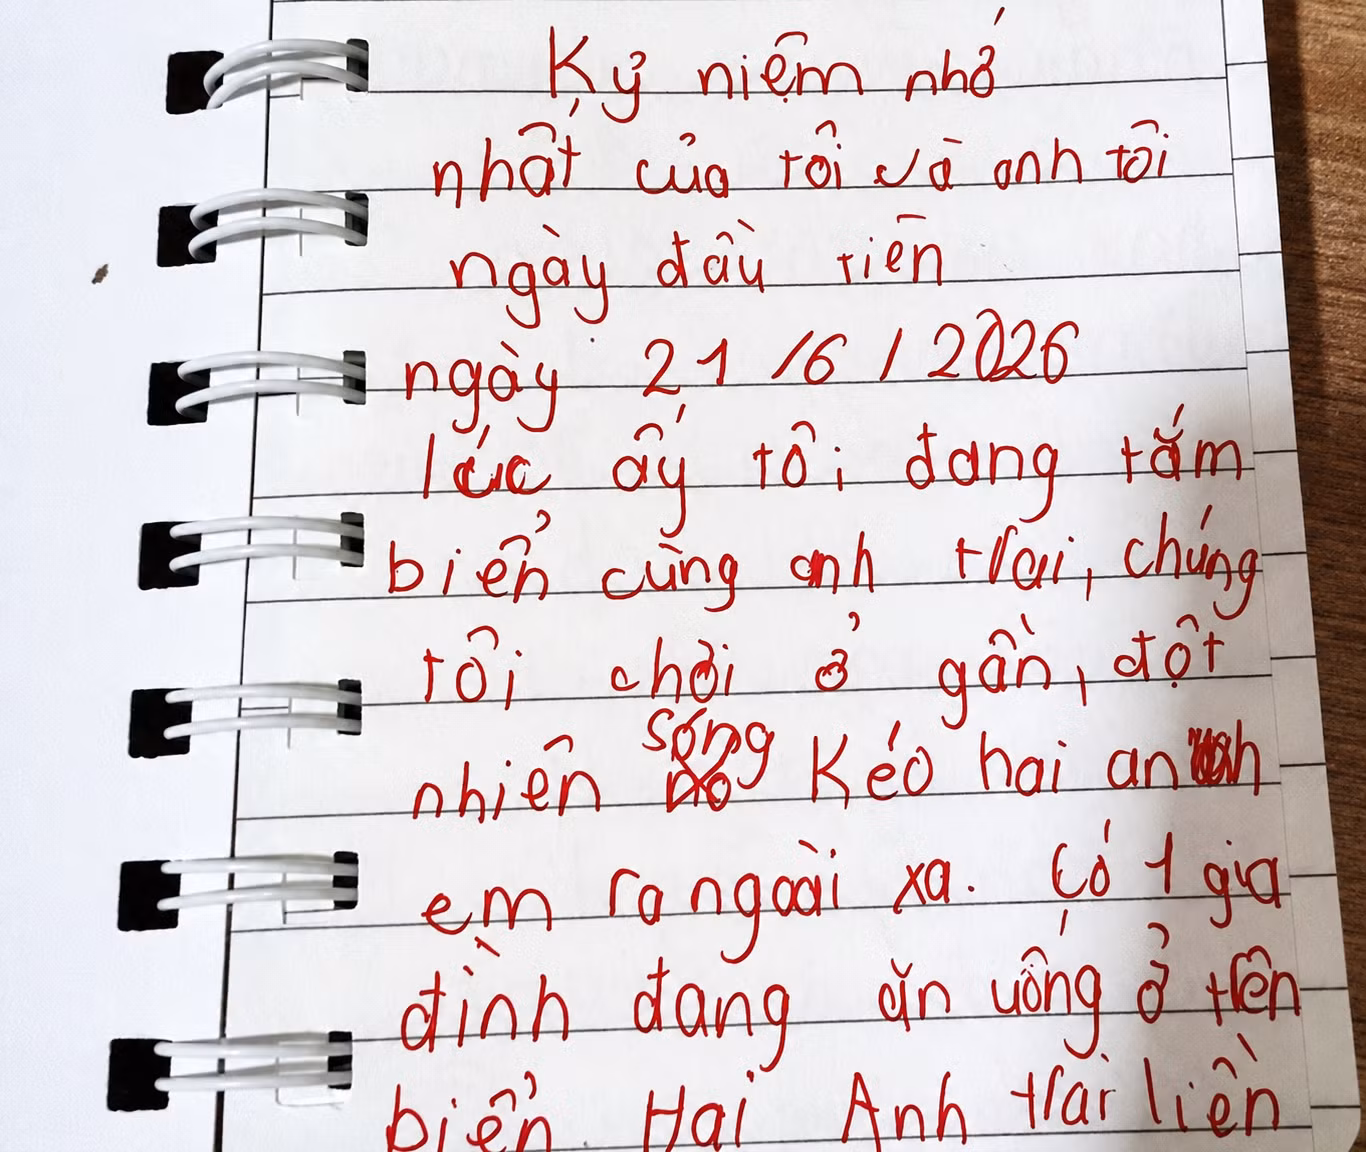 Kỷ niệm nhớ
nhất của tôi và anh tôi
ngày đầu tiên
ngày 21/6/2026
lúc ấy tôi đang tắm
biển cùng anh trai, chúng
tôi chơi ở gần, đột
nhiên sóng kéo hai anh
em ra ngoài xa. Có 1 gia
đình đang ăn uống ở trên
biển. Hai Anh trai liền